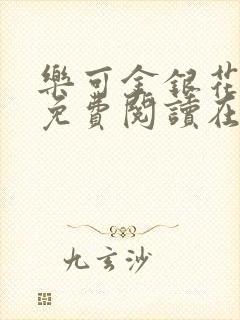 樂可金銀花
免費閱讀在
九玄沙